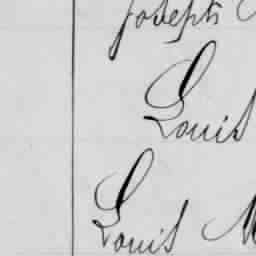 Joseph
Louis
Louis M